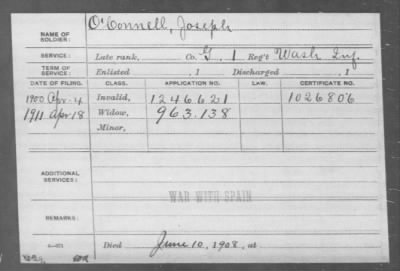 NAME OF SOLDIER: O'Connell, Joseph
SERVICE: Late rank, Co. G, 1 Reg't Wash Inf.
TERM OF SERVICE: Enlisted , 1 Discharged , 1
DATE OF FILING. CLASS. APPLICATION NO. LAW. CERTIFICATE NO.
1900 Apr. 4 Invalid, 1246621 1026806
1911 Apr 18 Widow, 963.138
Minor,
ADDITIONAL SERVICES:
WAR WITH SPAIN
REMARKS:
Died June 10, 1908, at